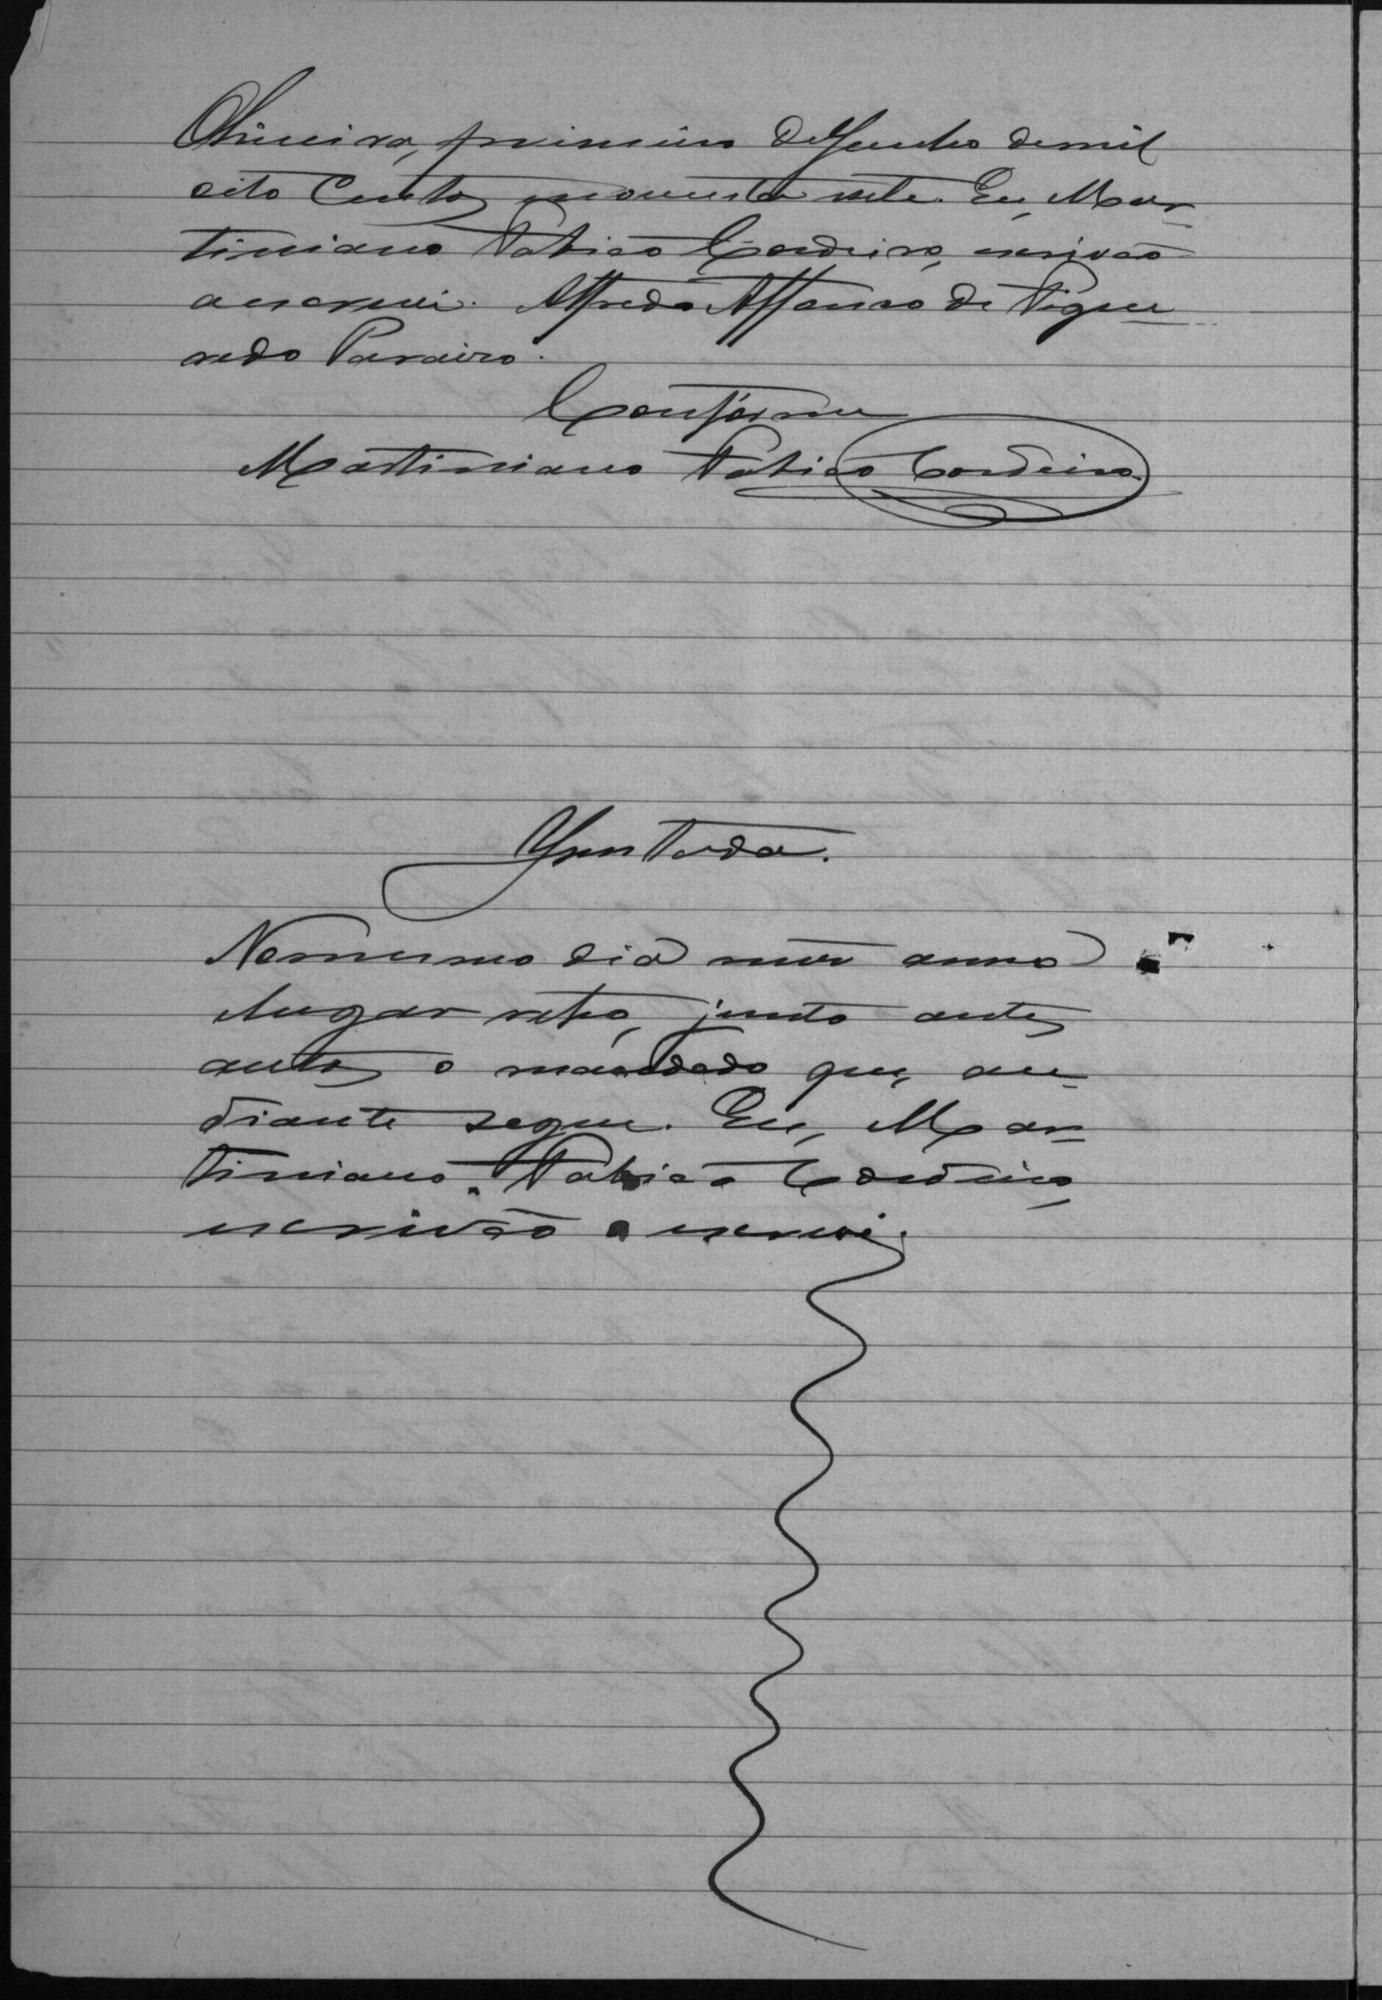 Oliveira, primeiro de Junho de mil
oito centos noventa sete. Eu, Mar-
tiniano Fabião Cordeiro, escrivão
a escrevi. Alfredo Affonso de Figuei-
redo Paraizo.
Conforme
Martiniano Fabião Cordeiro
Juntada.
No mesmo dia mez anno
lugar retro, junto antes
autos o mandado que, au-
diante segue. Eu, Mar-
tiniano Fabião Cordeiro,
escrivão o escrevi.